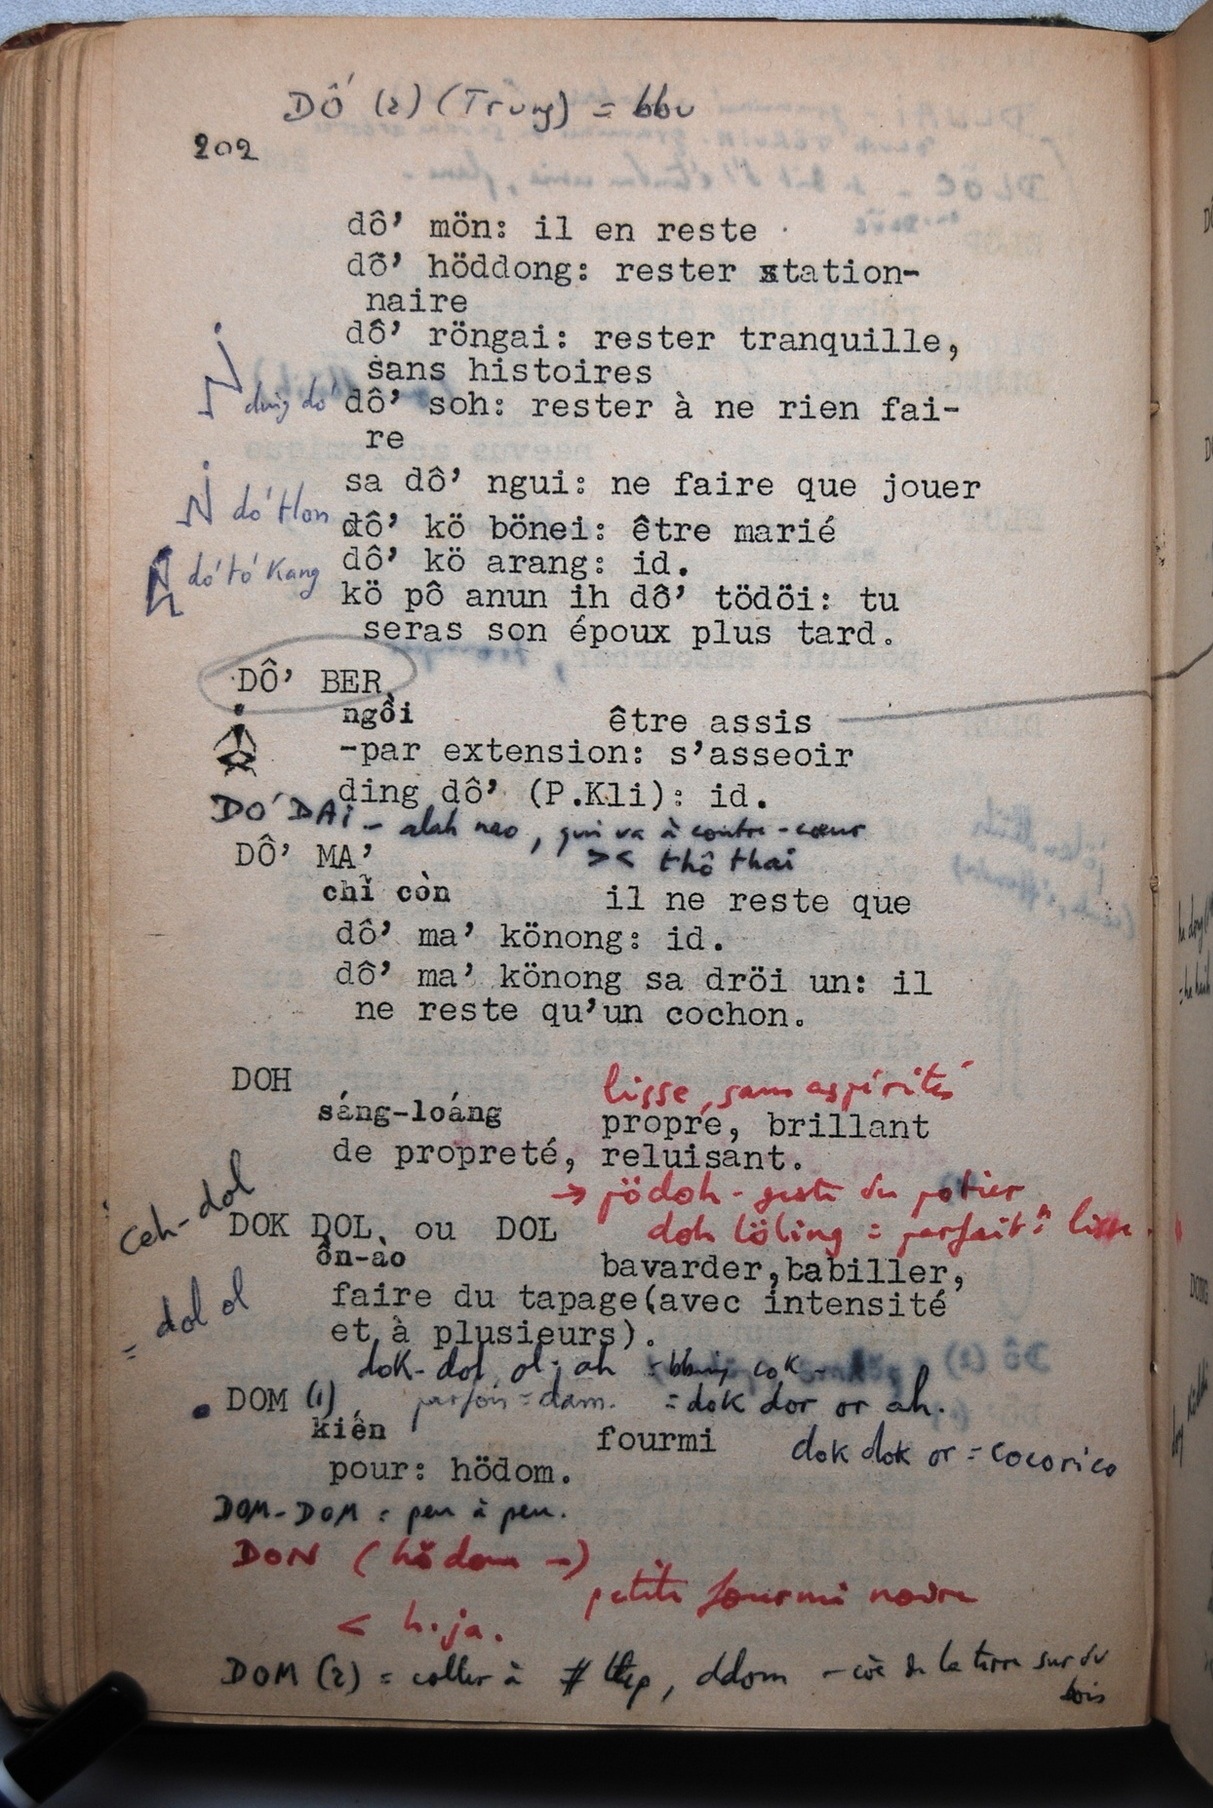 DÔ' (2) (Trung) = bbu
202
dô' mön: il en reste
dô' höddong: rester station-
naire
dô' röngai: rester tranquille,
sans histoires
ding dô' dô' soh: rester à ne rien fai-
re
sa dô' ngui: ne faire que jouer
dô' Hon dô' kö bönei: être marié
dô' tô' Kang dô' kö arang: id.
kö pô anun ih dô' tödöi: tu
seras son époux plus tard.
DÔ' BER
ngồi être assis
-par extension: s'asseoir
ding dô' (P.Kli): id.
DO' DAI - alah nao, qui va à contre-cœur
DÔ' MA' >< thô thai
chỉ còn il ne reste que
dô' ma' könong: id.
dô' ma' könong sa dröi un: il
ne reste qu'un cochon.
DOH lisse, sans aspérités
sáng-loáng propre, brillant
de propreté, reluisant.
→ pödoh - geste du potier
ceh-dol
DOK DOL, ou DOL doh löling = parfait.ᵗ lisse.
ồn-ào bavarder, babiller,
= dol ol
faire du tapage(avec intensité
et à plusieurs).
dok-dol ol-ah = cok
DOM (1), parfois = dam. = dok dor or ah.
kiến fourmi dok dok or = cocorico
pour: hödom.
DOM-DOM = peu à peu.
DON (hödom -)
petite fourmi noire
< h. ja.
DOM (2) = coller à # ttep, ddom - de la terre sur du
bois